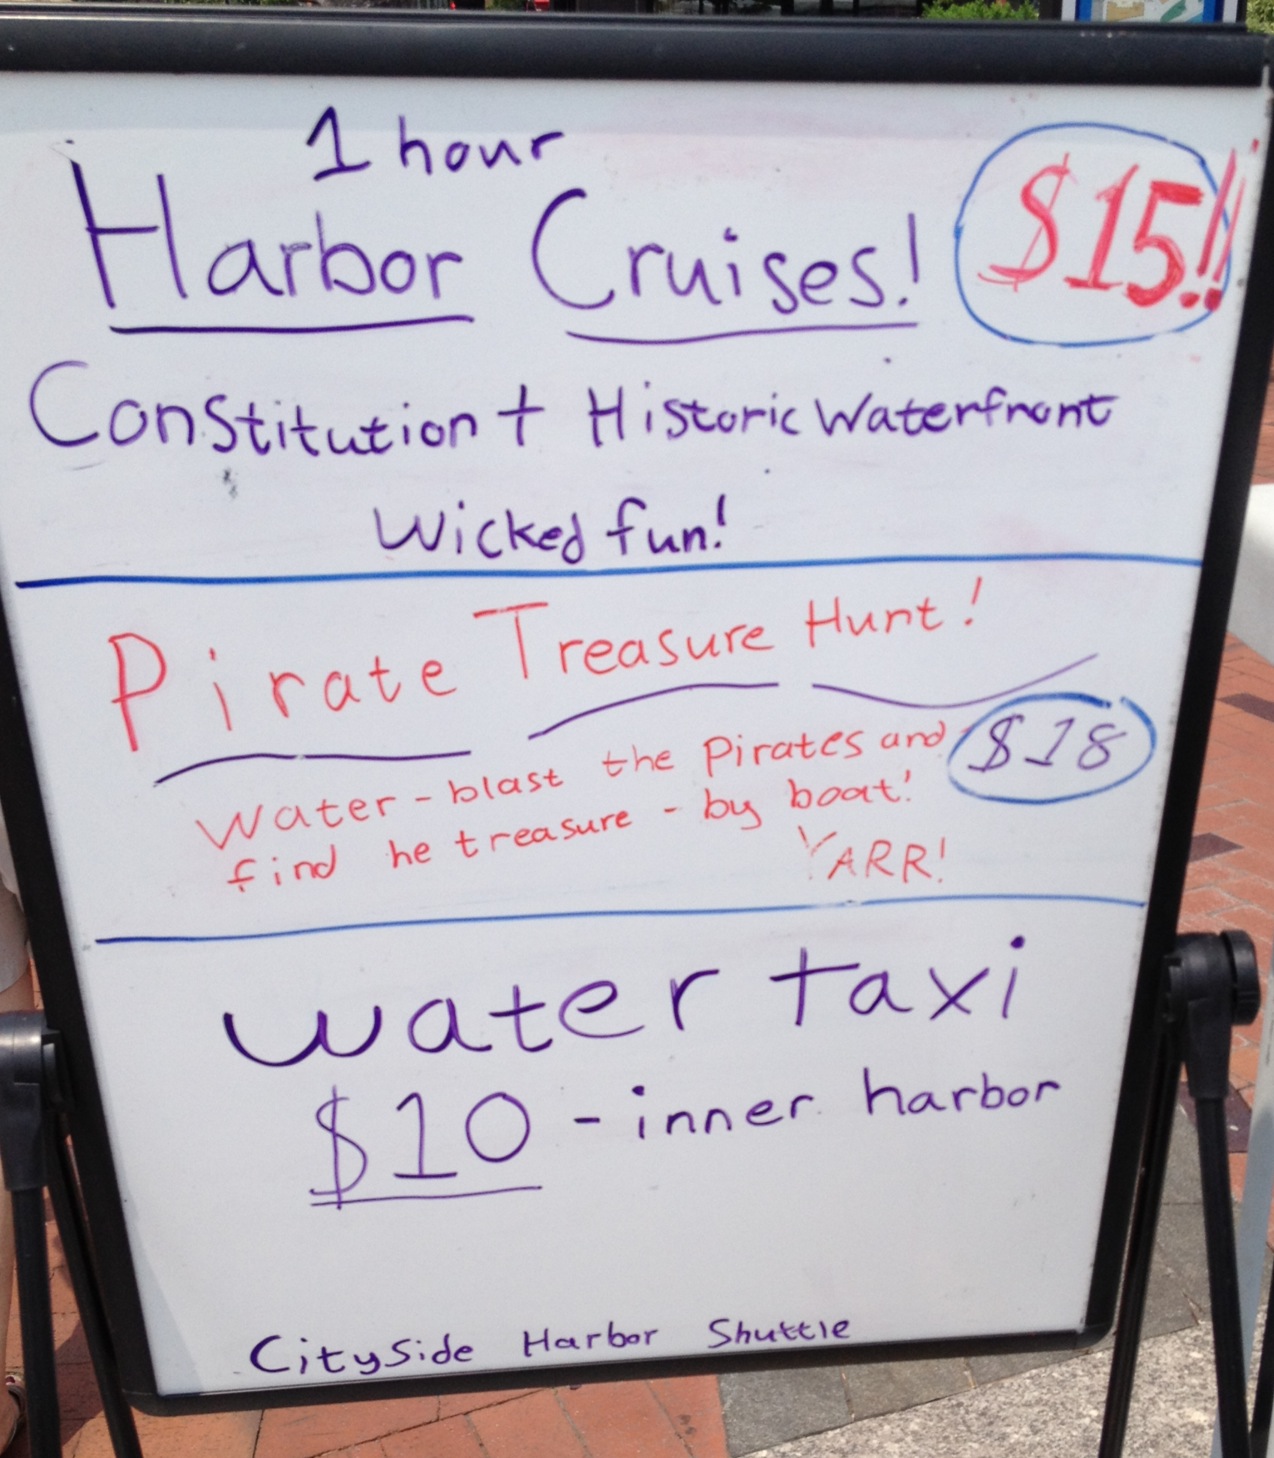 1 hour
Harbor Cruises! $15!!
Constitution + Historic Waterfront
Wicked fun!
Pirate Treasure Hunt!
Water-blast the Pirates and $18
find he treasure - by boat!
YARR!
water taxi
$10 - inner harbor
CitySide Harbor Shuttle